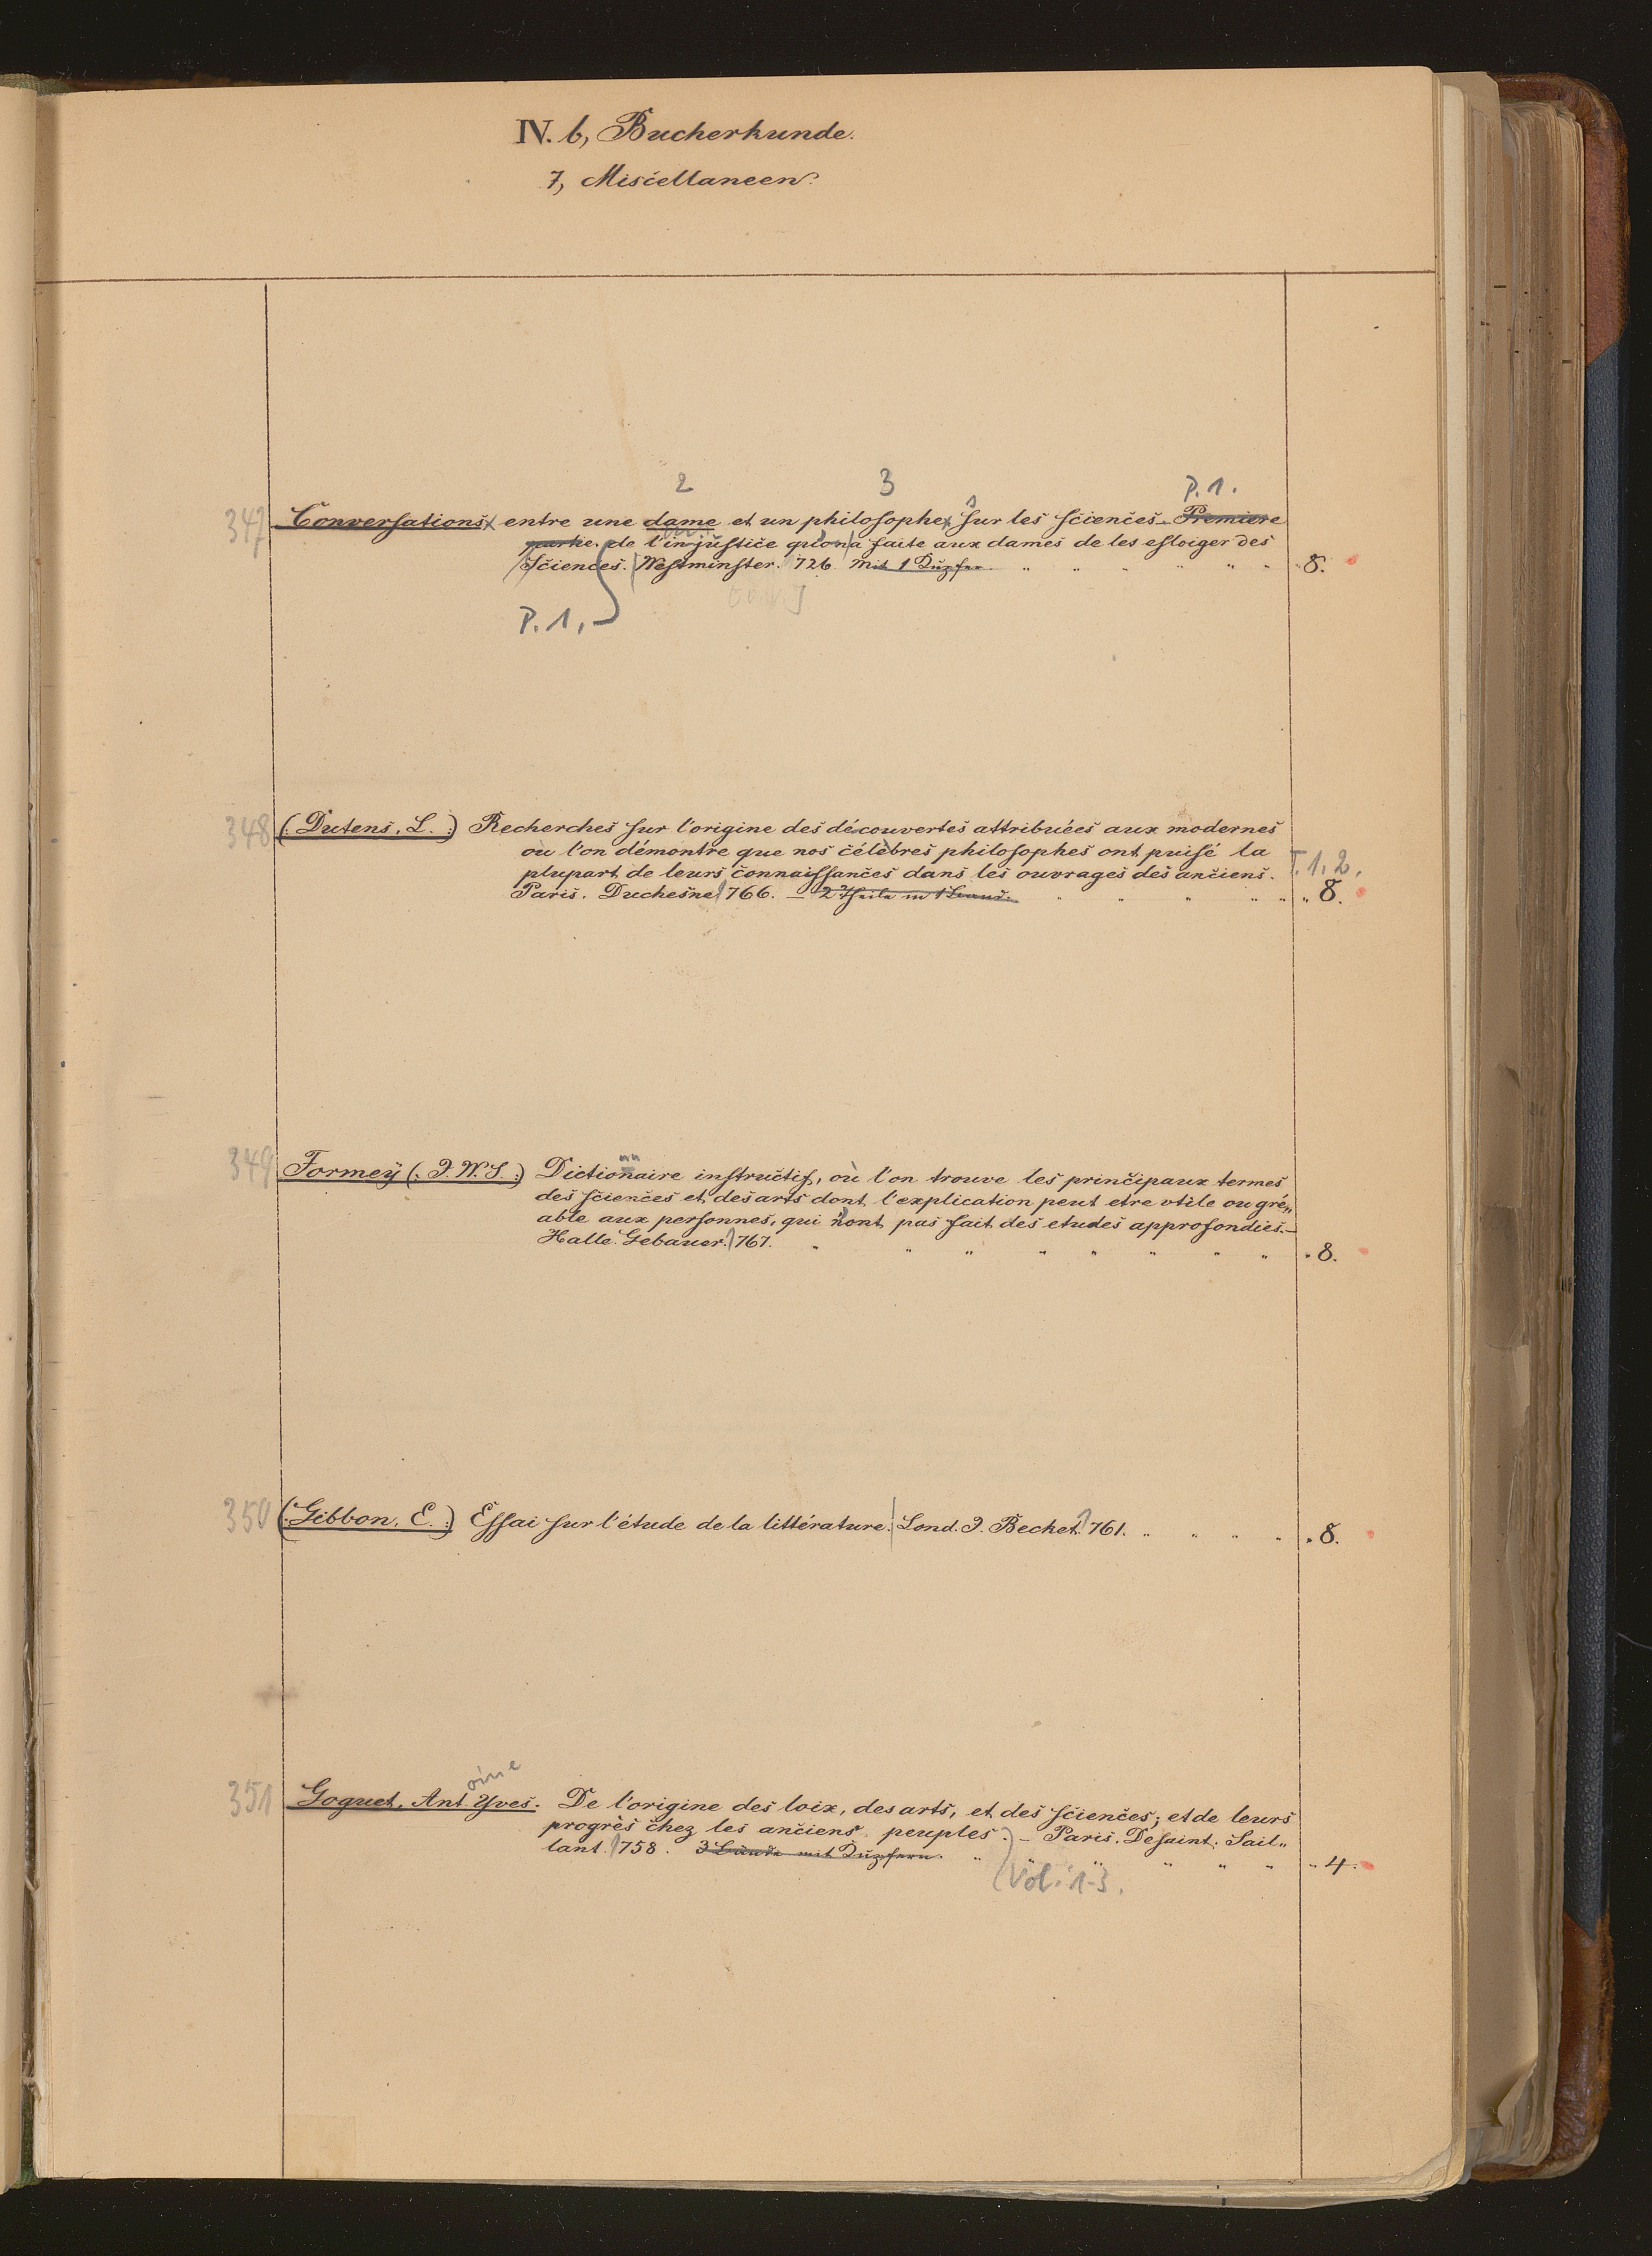 IV. b, Bucherkunde.
7, Miscellaneen.
2 3 1 P. 1.
347 Conversations entre une dame et un philosophe sur les sciences. Premiere
partie. de l'injustice qu'on a faite aux dames de les esloiger des
sciences. Westminster. 726. Mit 1 Kupfer. " " " " " " 8.
P. 1,
348 (: Dutens, L. :) Recherches sur l'origine des découvertes attribuées aux modernes
où l'on démontre que nos célèbres philosophes ont puisé la
plupart de leurs connaissances dans les ouvrages des anciens. T. 1, 2.
Paris. Duchesne 766. — 2 Theile in 1 Band. " " " " " " 8.
349 Formey (: J. W. S. :) Dictionaire instructif, où l'on trouve les principaux termes
nn
des sciences et des arts dont l'explication peut etre utile ou gré„
able aux personnes, qui n'ont pas fait des etudes approfondies. —
Halle. Gebauer. 767. " " " " " " " " " 8.
350 (: Gibbon, E. :) Essai sur l'étude de la littérature. Lond. J. Becket. 761. " " " " " 8.
oine
351 Goguet, Ant. Yves. De l'origine des loix, des arts, et des sciences; et de leurs
progrès chez les anciens peuples. — Paris. Desaint. Sail„
lant. 758. 3 Bände mit Kupfern. " " " " " " " 4.
(Vol. 1-3.